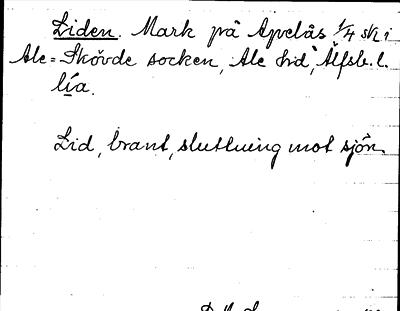 Liden. Mark på Apelås 1/4 sk i
Ale=Skövde socken, Ale hd, Älfsb. l.
lía.
Lid, brant, sluttning mot sjön.